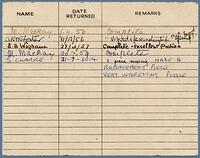 NAME DATE RETURNED REMARKS
M. Mackay 1.4.56 Complete
21/12/56
27/12/57 Complete - excellent puzzle
M. Mackay 20.7.59 Complete
S. CLARKE 21-9-2014 1 piece missing MADE A
REPLACEMENT PIECE
VERY INTERESTING PUZZLE